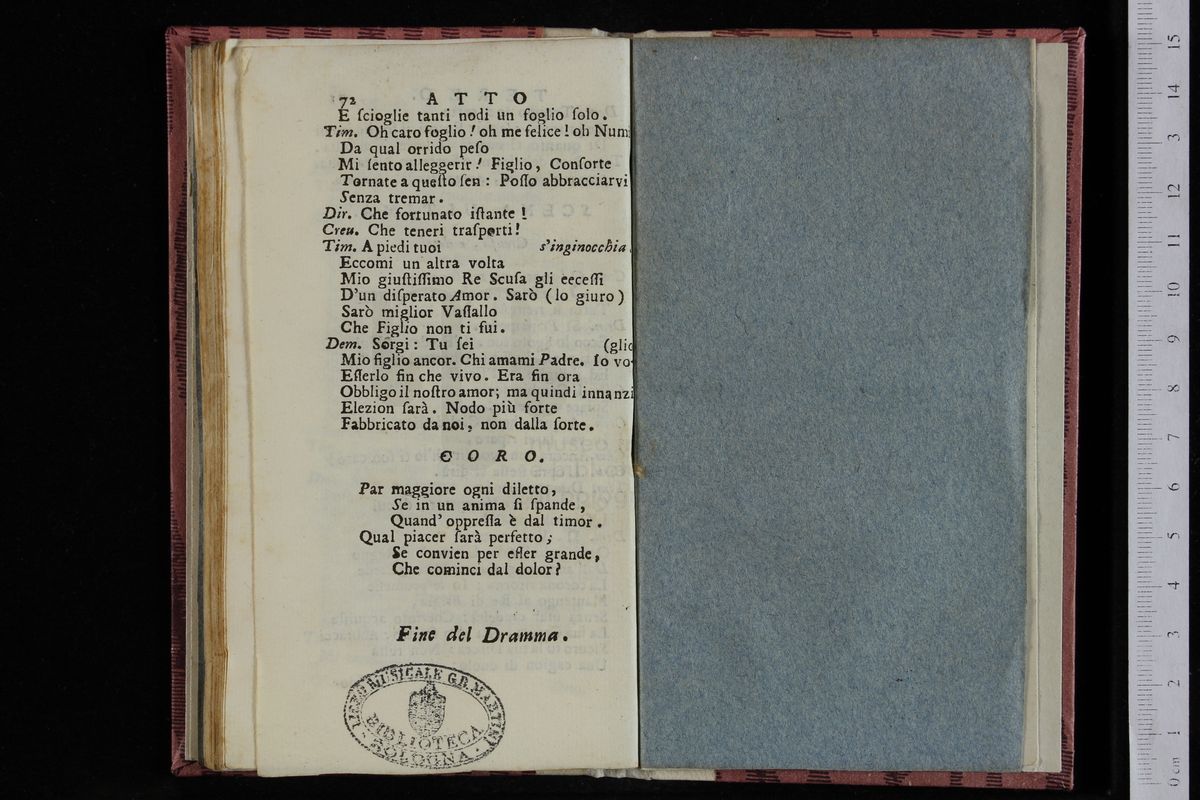 72 ATTO
E ſcioglie tanti nodi un foglio ſolo.
Tim. Oh caro foglio! oh me felice! oh Num
Da qual orrido peſo
Mi ſento alleggerir! Figlio, Conſorte
Tornate a queſto ſen: Poſſo abbracciarvi
Senza tremar.
Dir. Che fortunato iſtante!
Creu. Che teneri traſporti!
Tim. A piedi tuoi s'inginocchia.
Eccomi un altra volta
Mio giuſtiſſimo Re Scuſa gli ecceſſi
D'un diſperato Amor. Sarò (lo giuro)
Sarò miglior Vaſſallo
Che Figlio non ti fui.
Dem. Sorgi: Tu ſei (glio
Mio figlio ancor. Chiamami Padre. Io vo-
Eſſerlo fin che vivo. Era fin ora
Obbligo il noſtro amor; ma quindi innanzi
Elezion ſarà. Nodo più forte
Fabbricato da noi, non dalla ſorte.
CORO.
Par maggiore ogni diletto,
Se in un anima ſi ſpande,
Quand' oppreſſa è dal timor.
Qual piacer ſarà perfetto;
Se convien per eſſer grande,
Che cominci dal dolor?
Fine del Dramma.
LICEO MUSICALE G.B. MARTINI
BIBLIOTECA
BOLOGNA
0 cm 1 2 3 4 5 6 7 8 9 10 11 12 13 14 15